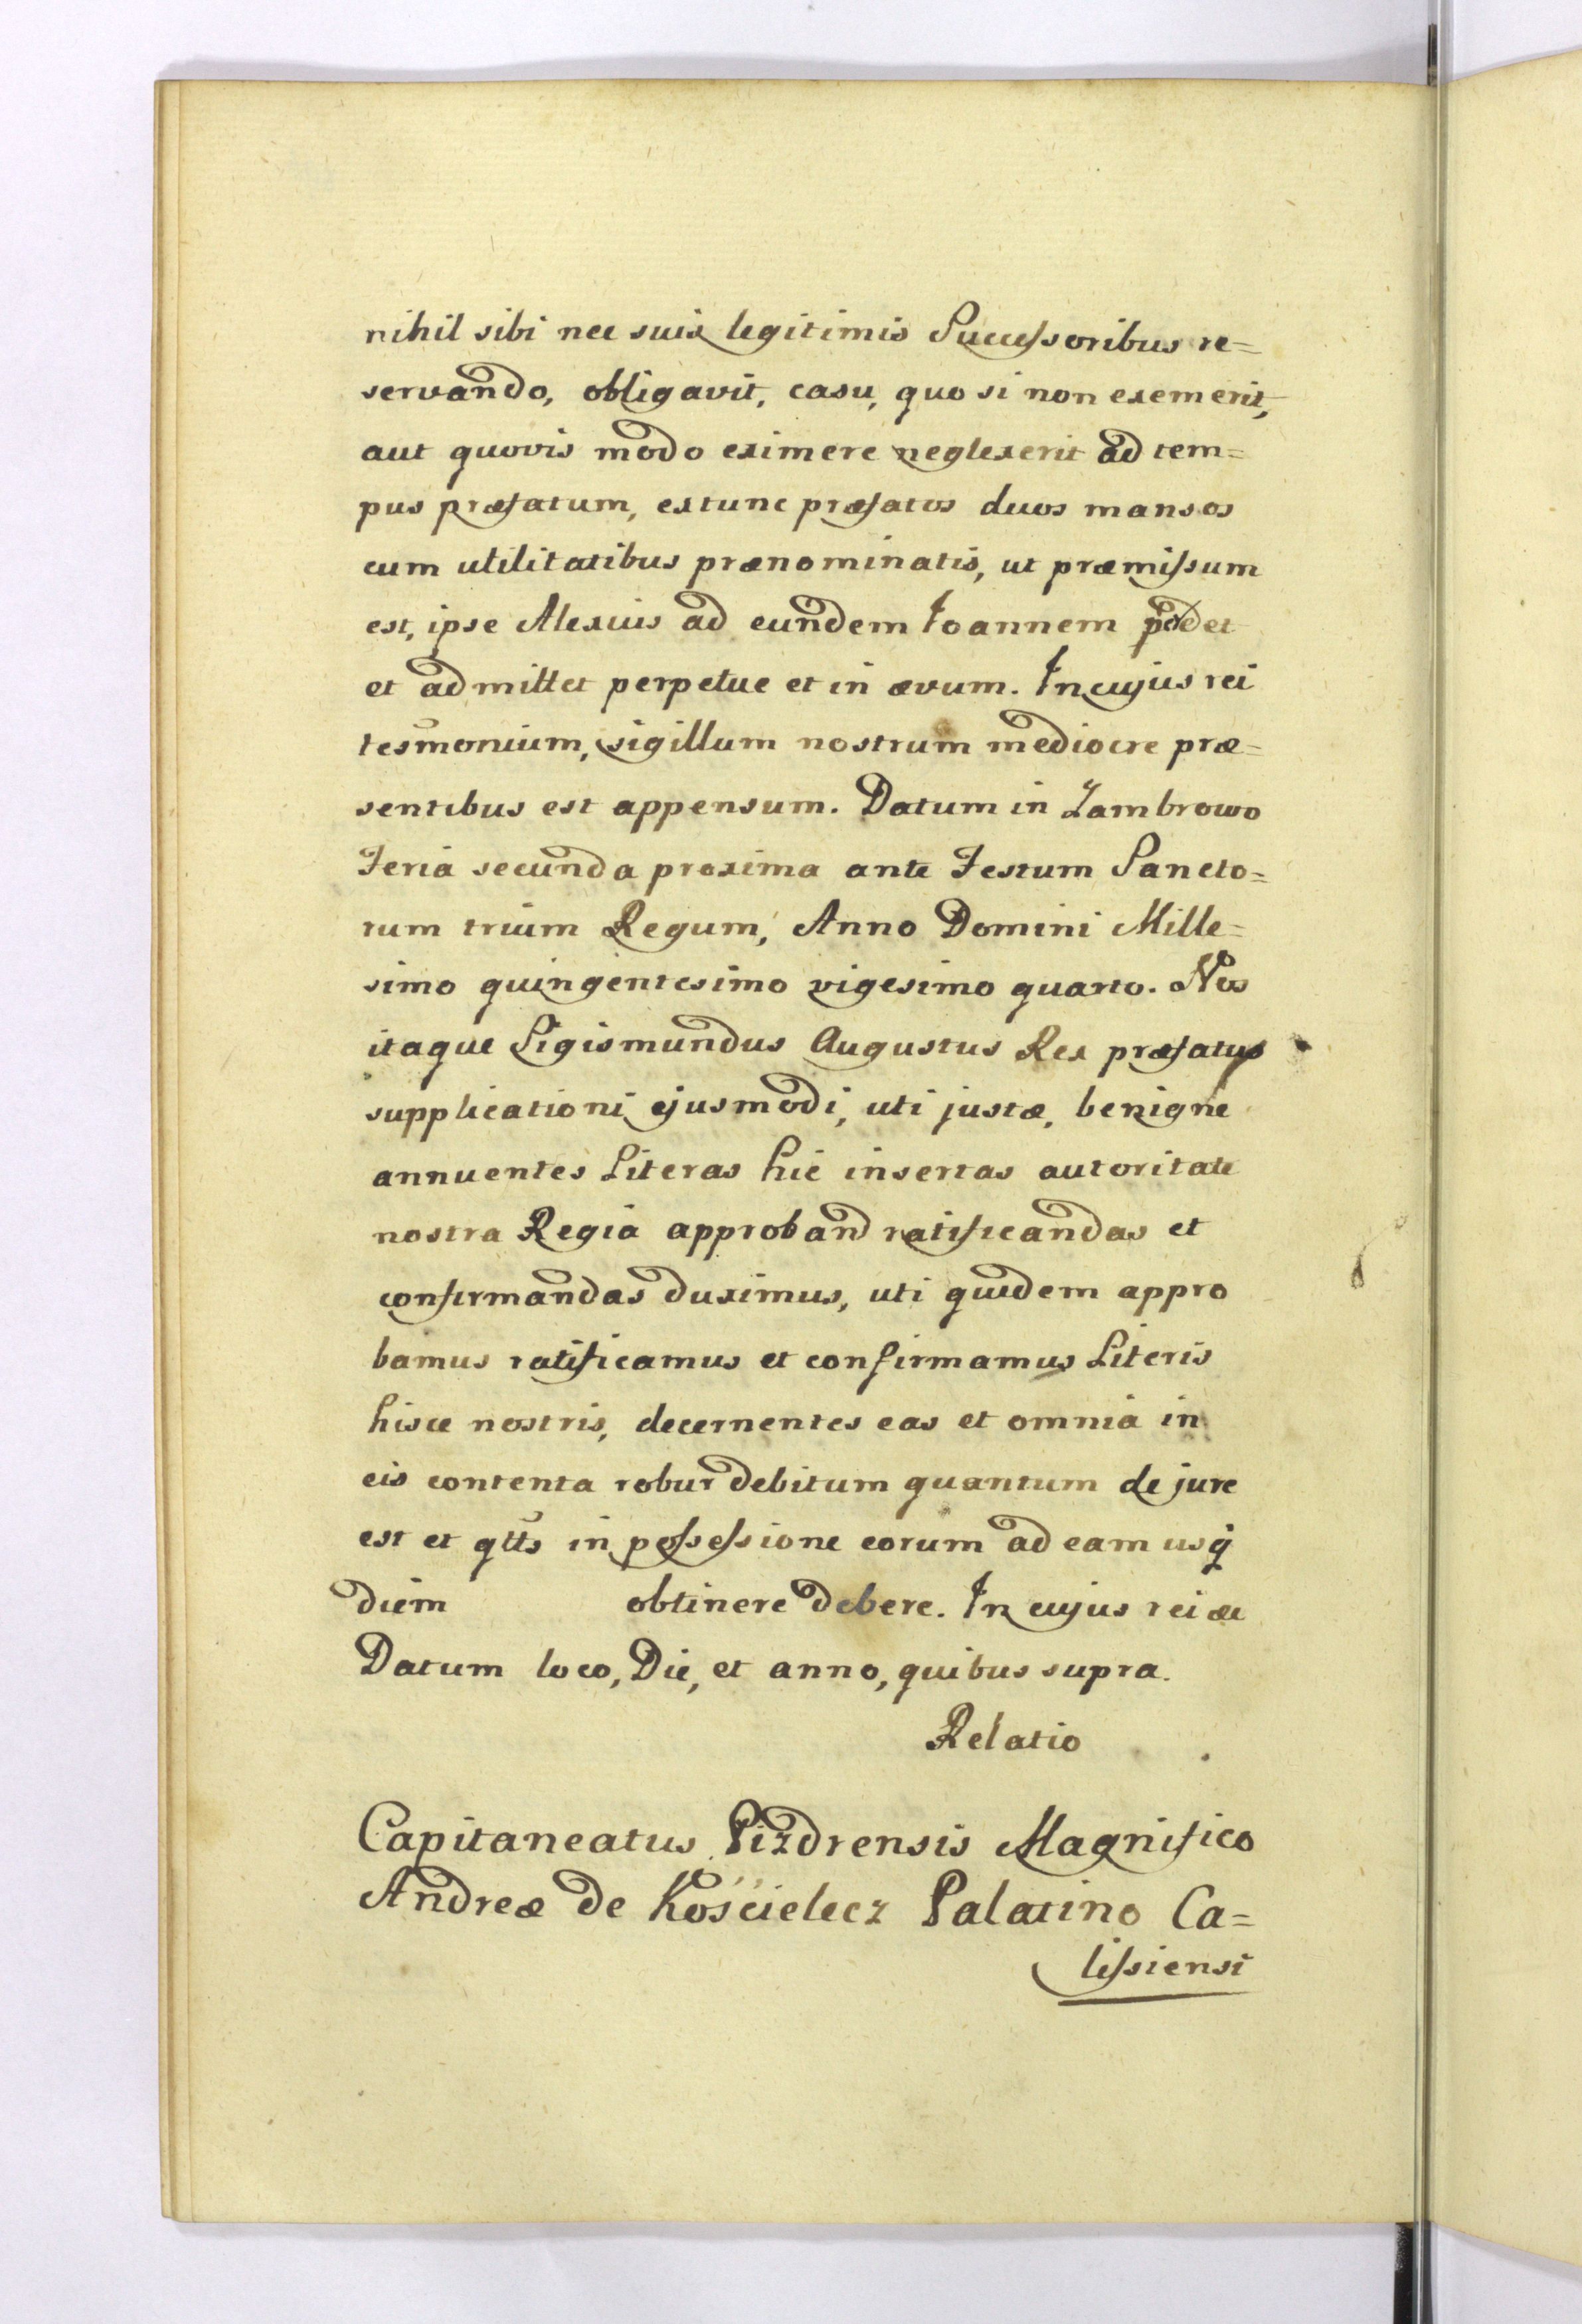 nihil sibi nec suis legitimis Successoribus re=
servando, obligavit, casu, quo si non exemerit,
aut quovis modo eximere neglexerit ad tem=
pus præfatum, extunc præfatos duos mansos
cum utilitatibus prænominatis, ut præmissum
est, ipse Alexius ad eundem Ioannem
et admittet perpetue et in ævum. In cujus rei
tesmonium, sigillum nostrum mediocre præ=
sentibus est appensum. Datum in Zambrowo
Feria secunda proxima ante Festum Sancto=
rum trium Regum, Anno Domini Mille=
simo quingentesimo vigesimo quarto. Nos
itaque Sigismundus Augustus Rex præfatus
supplicationi ejusmodi, uti justæ, benigne
annuentes Literas hic insertas autoritate
nostra Regia approband ratificandas et
confirmandas duximus, uti quidem appro
bamus ratificamus et confirmamus Literis
hisce nostris, decernentes eas et omnia in
eis contenta robur debitum quantum de jure
est et qtts in possessione eorum ad eam usq
diem obtinere debere. In cujus rei &c
Datum loco, Die, et anno, quibus supra.
Relatio
Capitaneatus Pizdrensis Magnifico
Andreæ de Kościelecz Palatino Ca=
lissiensi